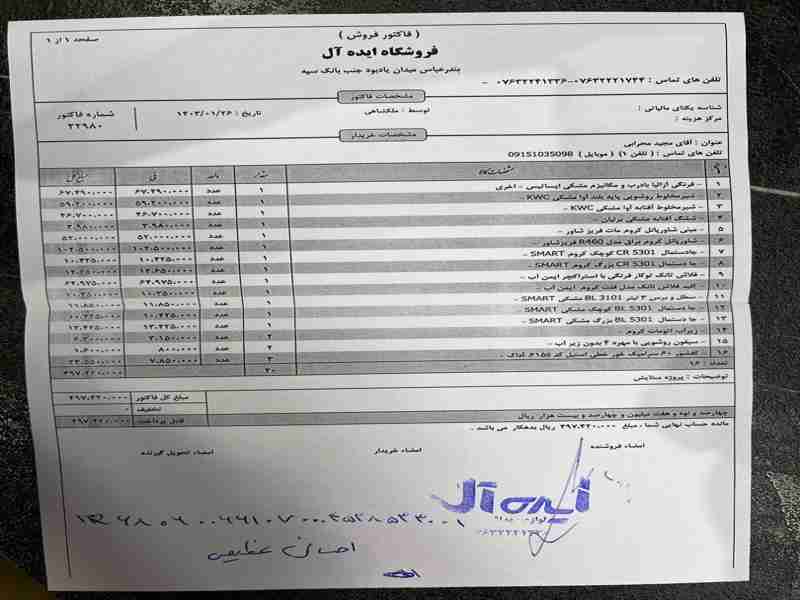 ( فاکتور فروش )
صفحه ۱ از ۱
فروشگاه ایده آل
بندرعباس میدان یادبود جنب بانک سپه
تلفن های تماس : ۰۷۶۳۲۲۲۱۷۴۴-۰۷۶۳۲۲۴۱۳۳۶ -
مشخصات فاکتور
شناسه یکتای مالیاتی :
توسط : ملکشاهی
تاریخ : ۱۴۰۳/۰۱/۲۶
شماره فاکتور
۲۲۹۸۰
مرکز هزینه :
مشخصات خریدار
عنوان : آقای مجید محرابی
تلفن های تماس : ( تلفن ۱) ( موبایل ) 09151035098
مشخصات کالا مقدار واحد فی مبلغ کل
۱ - فرنگی آزالیا بادرب و مکانیزم مشکی ایساتیس - اخری ۱ عدد ۶۷،۴۹۰،۰۰۰ ۶۷،۴۹۰،۰۰۰
۲ - شیرمخلوط روشویی پایه بلند آوا مشکی KWC - ۱ عدد ۵۹،۲۰۰،۰۰۰ ۵۹،۲۰۰،۰۰۰
۳ - شیرمخلوط آفتابه آوا مشکی KWC - ۱ عدد ۴۶،۷۰۰،۰۰۰ ۴۶،۷۰۰،۰۰۰
۴ - شلنگ آفتابه مشکی ۱ عدد ۳،۹۸۰،۰۰۰ ۳،۹۸۰،۰۰۰
۵ - مینی شاورپانل کروم مات فریز شاور - ۱ عدد ۵۲،۰۰۰،۰۰۰ ۵۲،۰۰۰،۰۰۰
۶ - شاورپانل کروم براق مدل R460 فریزشاور - ۱ عدد ۱۰۲،۵۰۰،۰۰۰ ۱۰۲،۵۰۰،۰۰۰
۷ - جادستمال CR 5301 کوچک کروم SMART - ۱ عدد ۱۰،۴۲۵،۰۰۰ ۱۰،۴۲۵،۰۰۰
۸ - جا دستمال CR 5301 بزرگ کروم SMART - ۱ عدد ۱۲،۶۵۰،۰۰۰ ۱۲،۶۵۰،۰۰۰
۹ - فلاش تانک توکار فرنگی با استراکچر ایمن آب - ۱ عدد ۶۴،۹۷۵،۰۰۰ ۶۴،۹۷۵،۰۰۰
۱۰ - کلید فلاش تانک مدل فلت کروم ایمن آب - ۱ عدد ۱۰،۳۵۰،۰۰۰ ۱۰،۳۵۰،۰۰۰
۱۱ - سطل و برس ۳ لیتر BL 3101 مشکی SMART - ۱ عدد ۱۱،۸۵۰،۰۰۰ ۱۱،۸۵۰،۰۰۰
۱۲ - جادستمال BL 5301 کوچک مشکی SMART - ۱ عدد ۱۰،۴۲۵،۰۰۰ ۱۰،۴۲۵،۰۰۰
۱۳ - جا دستمال BL 5301 بزرگ مشکی SMART - ۱ عدد ۱۳،۴۲۵،۰۰۰ ۱۳،۴۲۵،۰۰۰
۱۴ - زیرآب اتومات کروم - ۲ عدد ۳،۱۵۰،۰۰۰ ۶،۳۰۰،۰۰۰
۱۵ - سیفون روشویی با مهره ۴ بدون زیر آب - ۲ عدد ۸۰۰،۰۰۰ ۱،۶۰۰،۰۰۰
۱۶ - کفشور ۶۰ سرامیک خور خطی استیل کد ۶۱۵۵ کوک - ۳ عدد ۷،۸۵۰،۰۰۰ ۲۳،۵۵۰،۰۰۰
تعداد : ۱۶ ۲۰ ۴۹۷،۴۲۰،۰۰۰
توضیحات : پروژه ستایش
مبلغ کل فاکتور ۴۹۷،۴۲۰،۰۰۰
تخفیف ۰
چهارصد و نود و هفت میلیون و چهارصد و بیست هزار ریال
قابل پرداخت ۴۹۷،۴۲۰،۰۰۰
مانده حساب نهایی شما ، مبلغ ۴۹۷،۴۲۰،۰۰۰ ریال بدهکار می باشد .
امضاء فروشنده
امضاء خریدار
امضاء تحویل گیرنده
ایده آل